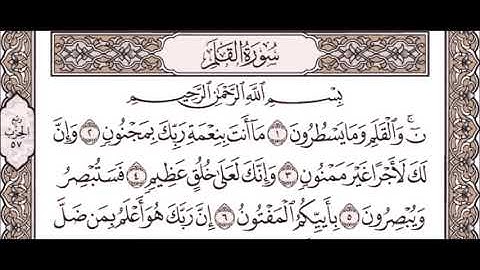 سُورَةُ القَلَمِ
بِسْمِ اللَّهِ الرَّحْمَٰنِ الرَّحِيمِ
نٓ ۚ وَالْقَلَمِ وَمَا يَسْطُرُونَ ١ مَا أَنتَ بِنِعْمَةِ رَبِّكَ بِمَجْنُونٍ ٢ وَإِنَّ
لَكَ لَأَجْرًا غَيْرَ مَمْنُونٍ ٣ وَإِنَّكَ لَعَلَىٰ خُلُقٍ عَظِيمٍ ٤ فَسَتُبْصِرُ
وَيُبْصِرُونَ ٥ بِأَييِّكُمُ الْمَفْتُونُ ٦ إِنَّ رَبَّكَ هُوَ أَعْلَمُ بِمَن ضَلَّ
رُبْع
الحِزْب
٥٧